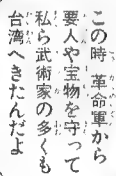 この時　革命軍から
要人や宝物を守って
私ら武術家の多くも
台湾へきたんだよ